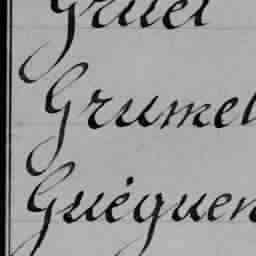 Gruel
Grumel
Guéguen